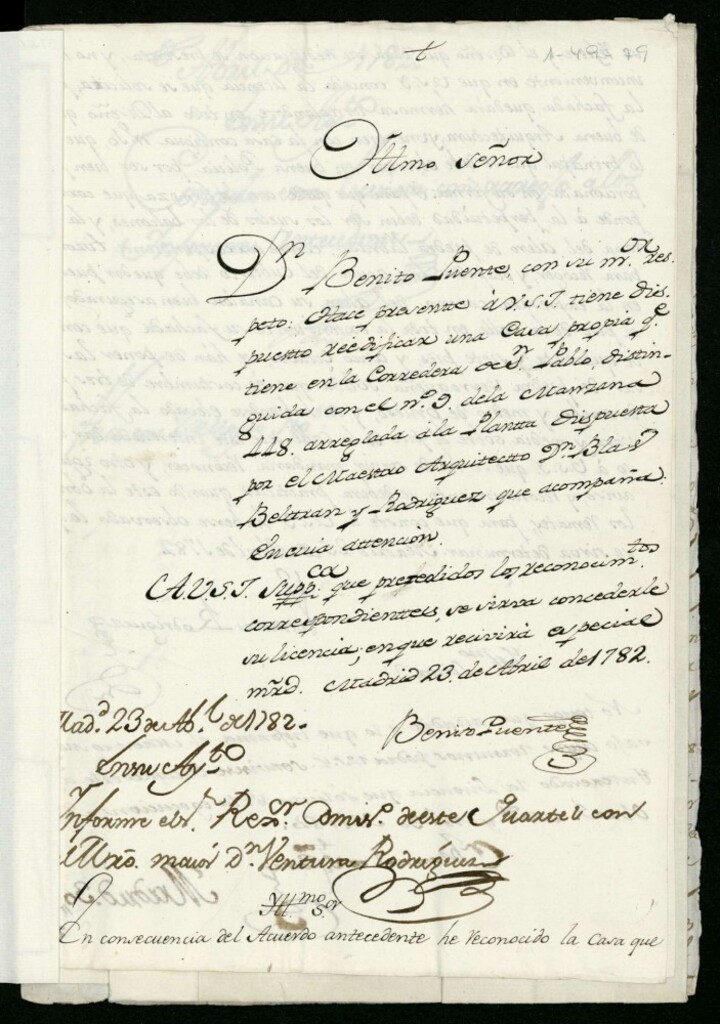 +
1-49-29
Yllmo. Señor
Dn Benito Puente, con su mor. res-
peto: Hace presentte à V.S.I. tiene dis-
puestto reedificar una Casa propia q.e
tiene en la Corredera de Sn. Pablo, distin-
guida con el nº 9 dela Manzana
448. arreglada à la Plantta dispuesta
por el Maestro Arquitectto Dn. Blas
Beltran y Rodriguez que acompaña.
En cuia attencion.
A.V.S.I. Suppca. que prezedidos los reconocimtos
correspondientes, se sirva concederle
su licencia; en que recivirà especial
mrd. Madrid 23. de Abril de 1782.
Benito Puente
Mad.d 23 de Ab.l de 1782.
En su Ayto
Informe el sr. Rexor. Comiso. de este Quartel con
el Mro. maior Dn. Ventura Rodriguez
Yllmo. Sor.
En consecuencia del Acuerdo antecedente he reconocido la Casa que